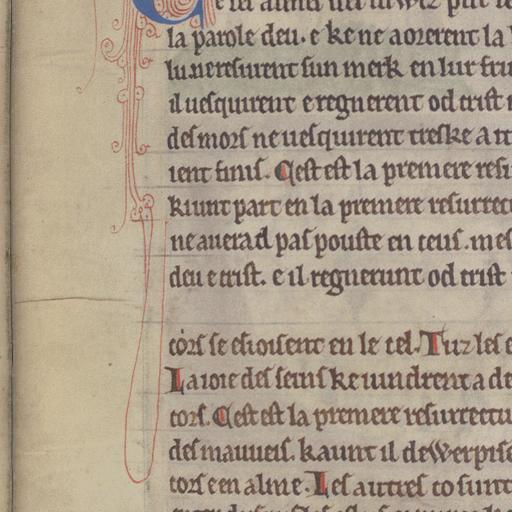 la parole deu. e ke ne aorerent la
ne resurent sun merk en lur fru
il uesquirent e regnerent od crist
des mors ne uesquirent treske a
ient finis. Cest est la premere resu
ki unt part en la premere resurrect
ne auerad pas pouste en ceus. mes
deu e crist. e il regnerunt od crist
cors se choisent en le cel. Tuz les
La ioie des seins ke iundrent a de
cors. Cest est la premere resurrectiu
des mauueis. kaunt il dewerpise
cors e en alme. Les autres co sunt